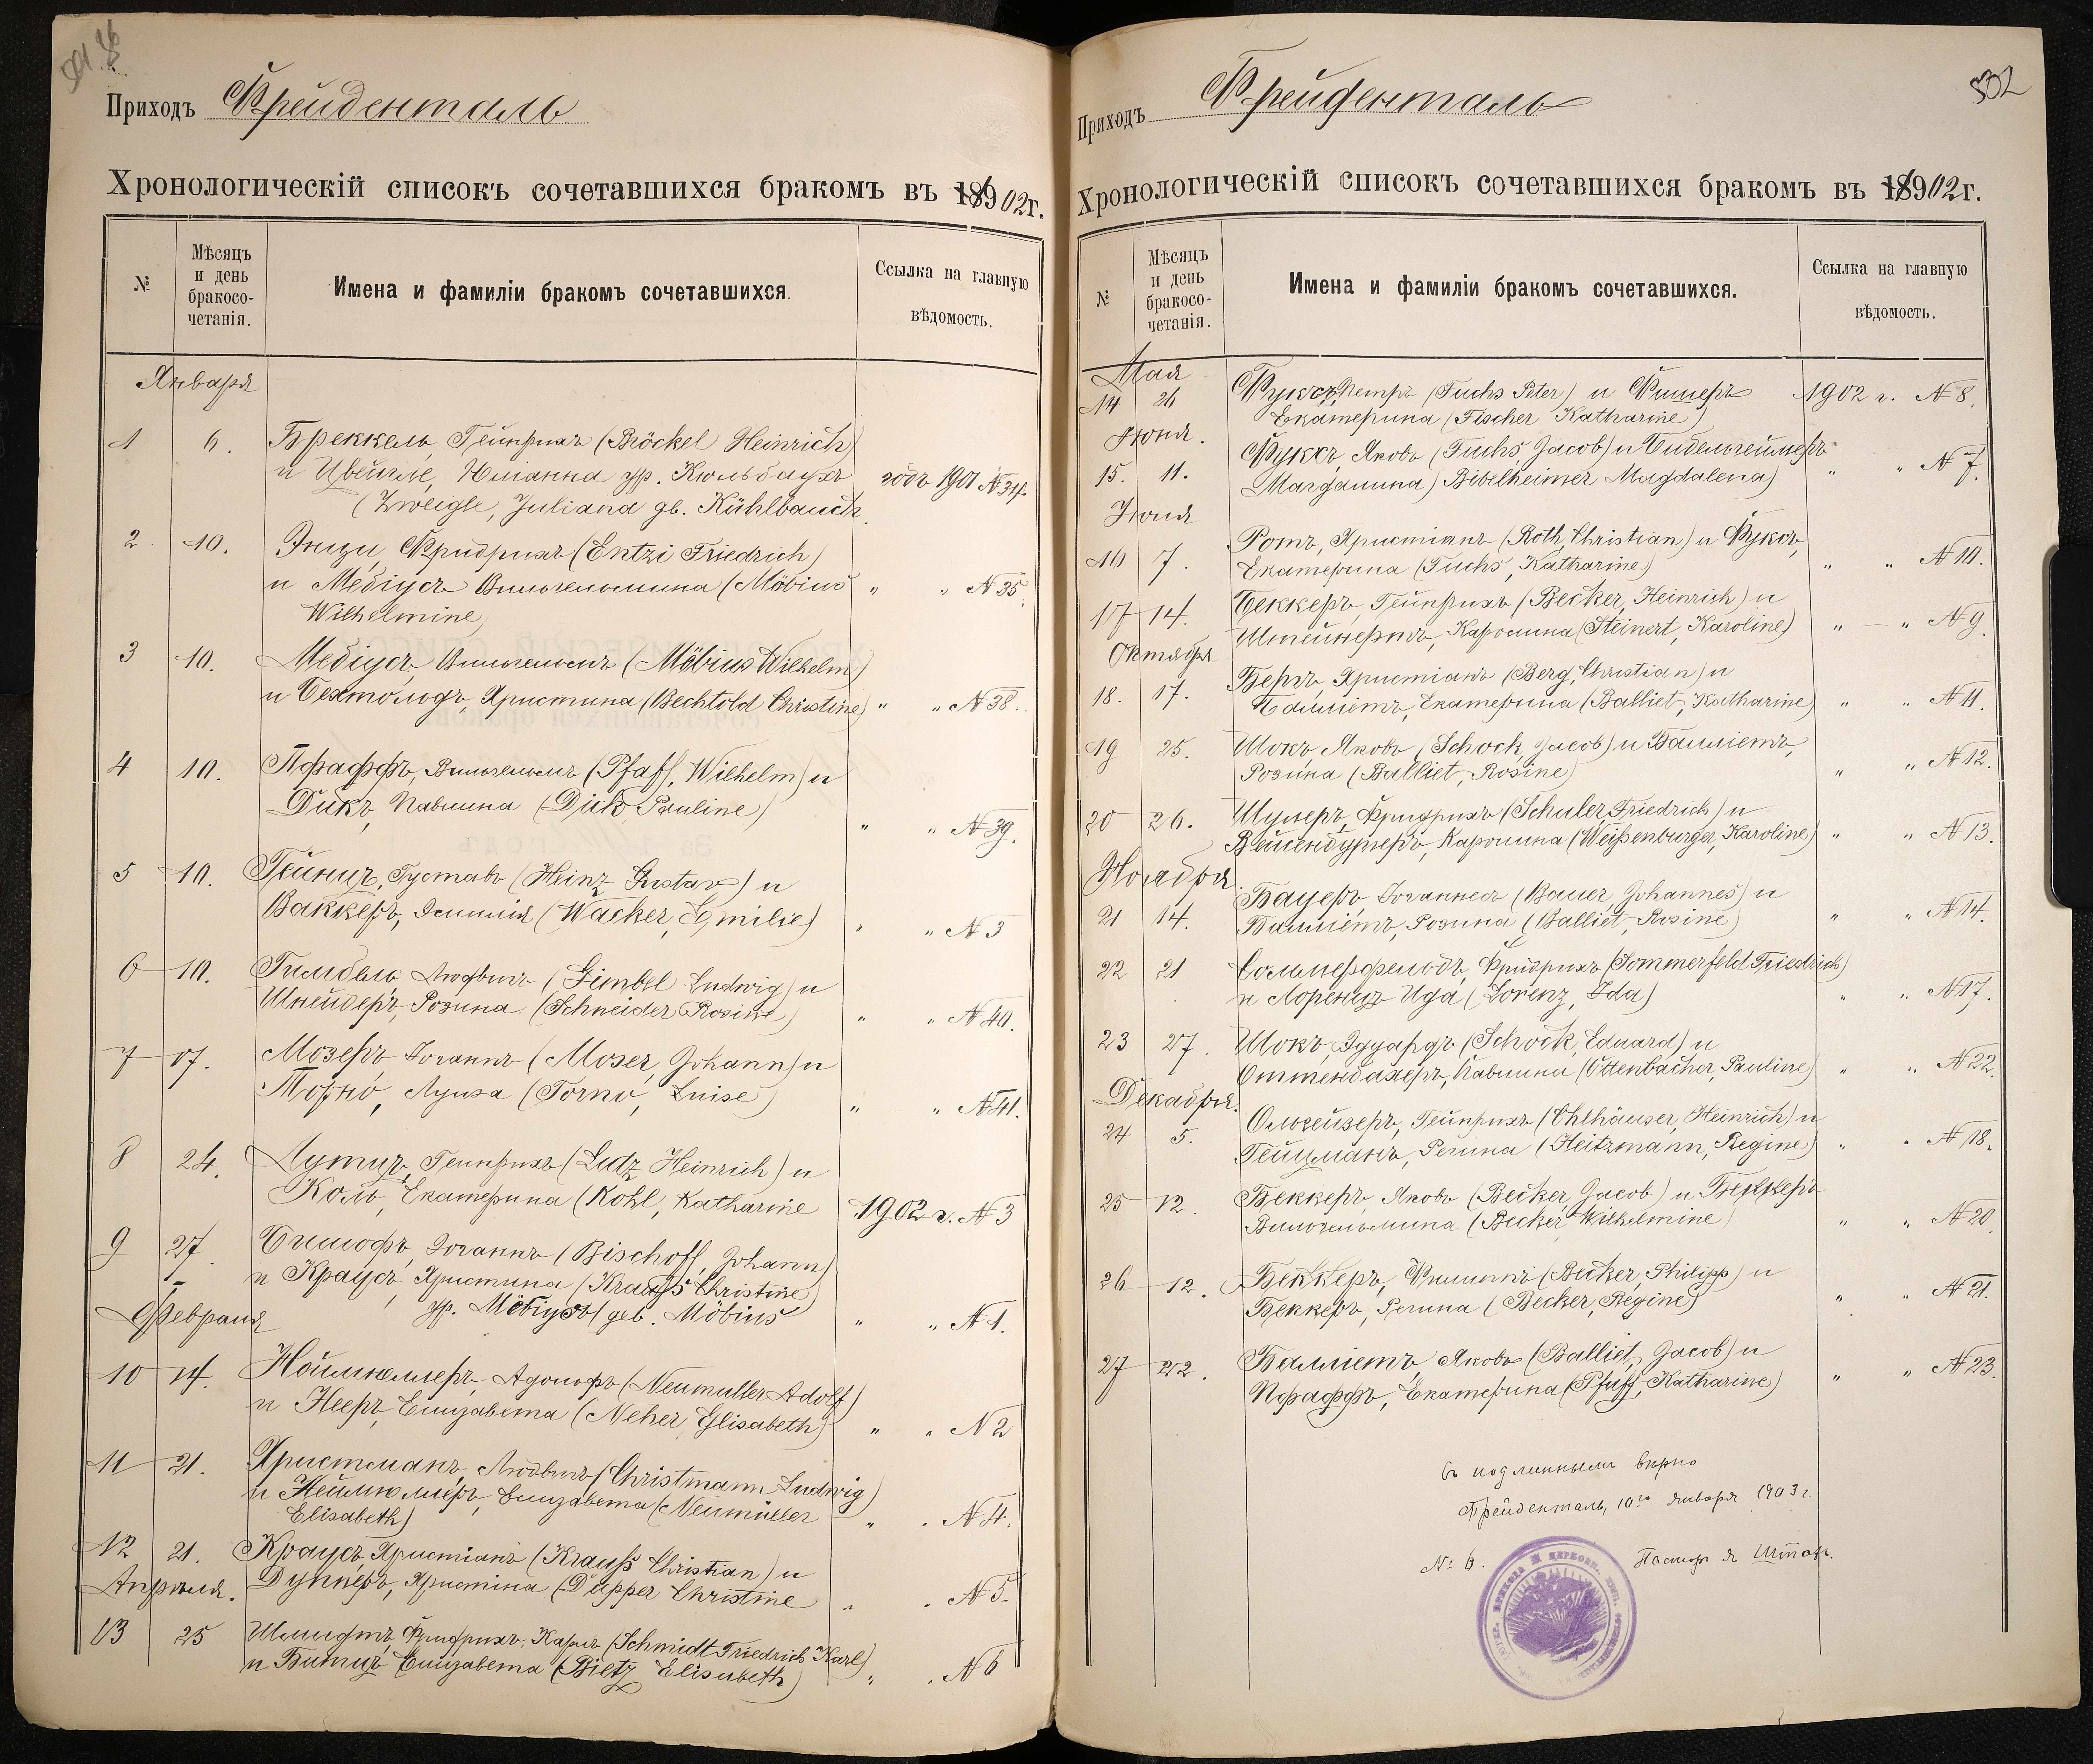 Приходъ Фрейденталь
Хронологическій списокъ сочетавшихся бракомъ въ 1902 г.
№
Мѣсяцъ
и день
бракосо-
четанія.
Имена и фамиліи бракомъ сочетавшихся.
Ссылка на главную
вѣдомость.
Января
1 6. Бреккель, Гейнрихъ (Bröckel Heinrich)
и Цвейгле, Юліанна ур. Кюльбаухъ годъ 1901 № 34.
(Zweigle, Juliana gb. Kühlbauch
2 10. Энци, Фридрихъ (Entzi Friedrich)
и Мебіусъ Вильгельмина (Möbius " " № 35.
Wilhelmine)
3 10. Мебіусъ, Вильгельмъ (Möbius Wilhelm)
и Бехтольдъ, Христина (Bechtold Christine) " " № 38.
4 10. Пфаффъ, Вильгельмъ (Pfaff, Wilhelm) и
Дикъ, Павлина (Dick Pauline) " " № 39.
5 10. Гейнцъ, Густавъ (Heinz Gustav) и
Ваккеръ, Эмилія (Wacker, Emilie) " " № 3
6 10. Гимбель Людвигъ (Gimbel Ludwig) и
Шнейдеръ, Розина (Schneider Rosine) " " № 40.
7 17. Мозеръ, Іоганнъ (Moser, Johann) и
Торно, Луиза (Torno, Luise) " " № 41.
8 24. Лутцъ, Гейнрихъ (Lutz Heinrich) и
Коль, Екатерина (Kohl, Katharine 1902 г. № 3
9 27. Бишофъ, Іоганнъ (Bischoff, Johann)
и Краусъ, Христина (Krauß Christine)
ур. Мебіусъ (geb. Möbius " " № 1.
Февраля
10 14. Ноймюллеръ, Адольфъ (Neumuller Adolf)
и Нееръ, Елизавета (Neher, Elisabeth) " " № 2
11 21. Христманъ, Людвигъ (Christmann Ludwig)
и Неймюллеръ, Елизавета (Neumüller " " № 4.
Elisabeth)
12 21. Краусъ, Христіанъ (Krauß Christian) и
Апрѣля. Дупперъ, Христина (Dupper Christine " " № 5.
13 25 Шмидтъ, Фридрихъ, Карлъ (Schmidt Friedrich Karl)
и Битцъ Елизавета (Bietz Elisabeth) " " № 6
Приходъ Фрейденталь
302
Хронологическій списокъ сочетавшихся бракомъ въ 1902 г.
№
Мѣсяцъ
и день
бракосо-
четанія.
Имена и фамиліи бракомъ сочетавшихся.
Ссылка на главную
вѣдомость.
Мая
14 26 Фуксъ, Петръ (Fuchs Peter) и Фишеръ 1902 г. № 8.
Екатерина (Fischer Katharine)
Іюня.
15. 11. Фуксъ, Яковъ (Fuchs, Jacob) и Бибельгеймеръ
Магдалина) Bibelheimer Magdalena) " " № 7.
Іюля
16 7. Ротъ, Христіанъ (Roth, Christian) и Фуксъ,
Екатерина (Fuchs, Katharine) " " № 10.
17 14. Беккеръ, Гейнрихъ (Becker, Heinrich) и
Штейнертъ, Каролина (Steinert, Karoline) " " № 9.
Октября
18. 17. Бергъ, Христіанъ (Berg, Christian) и
Балліетъ, Екатерина (Balliet, Katharine) " " № 11.
19 25. Шокъ, Яковъ (Schock, Jacob) и Балліетъ,
Розина (Balliet, Rosine) " " № 12.
20 26. Шулеръ, Фридрихъ (Schuler, Friedrich) и
Вейсенбургеръ, Каролина (Weißenburger, Karoline) " " № 13.
Ноября
21 14. Бауеръ, Іоганнесъ (Bauer Johannes) и
Балліетъ, Розина (Balliet, Rosine) " " № 14.
22 21 Соммерфельдъ, Фридрихъ (Sommerfeld Friedrich)
и Лоренцъ Ида (Lorenz, Ida) " " № 17.
23 27. Шокъ, Эдуардъ (Schock, Eduard) и
Оттенбахеръ, Павлина (Ottenbacher, Pauline) " " № 22.
Декабря.
24 5. Ольгейзеръ, Гейнрихъ (Ohlhäuser, Heinrich) и
Гейцманъ, Регина (Heitzmann, Regine) " " № 18.
25 12. Беккеръ, Яковъ (Becker, Jacob) и Беккеръ
Вильгельмина (Becker Wilhelmine) " " № 20
26 12. Беккеръ, Филиппъ (Becker, Philipp) и
Беккеръ, Регина (Becker, Regine) " " № 21.
27 22. Балліетъ, Яковъ (Balliet, Jacob) и
Пфаффъ, Екатерина (Pfaff, Katharine) " " № 23.
Съ подлиннымъ вѣрно
Фрейденталь, 10го января 1903 г.
№ 6. Пасторъ Я Штах.